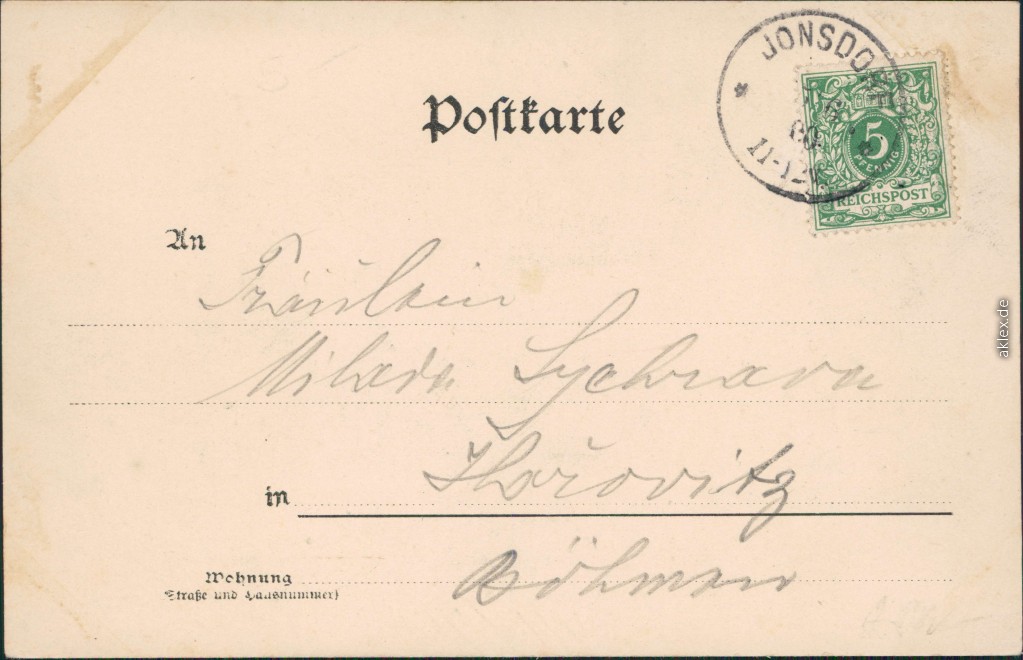 JONSDORF
11-12V
5
PFENNIG
REICHSPOST
Postkarte
An
Fräulein
Milada Sychrava
in Hořovitz
Wohnung
(Straße und Hausnummer)
Böhmen
aklex.de